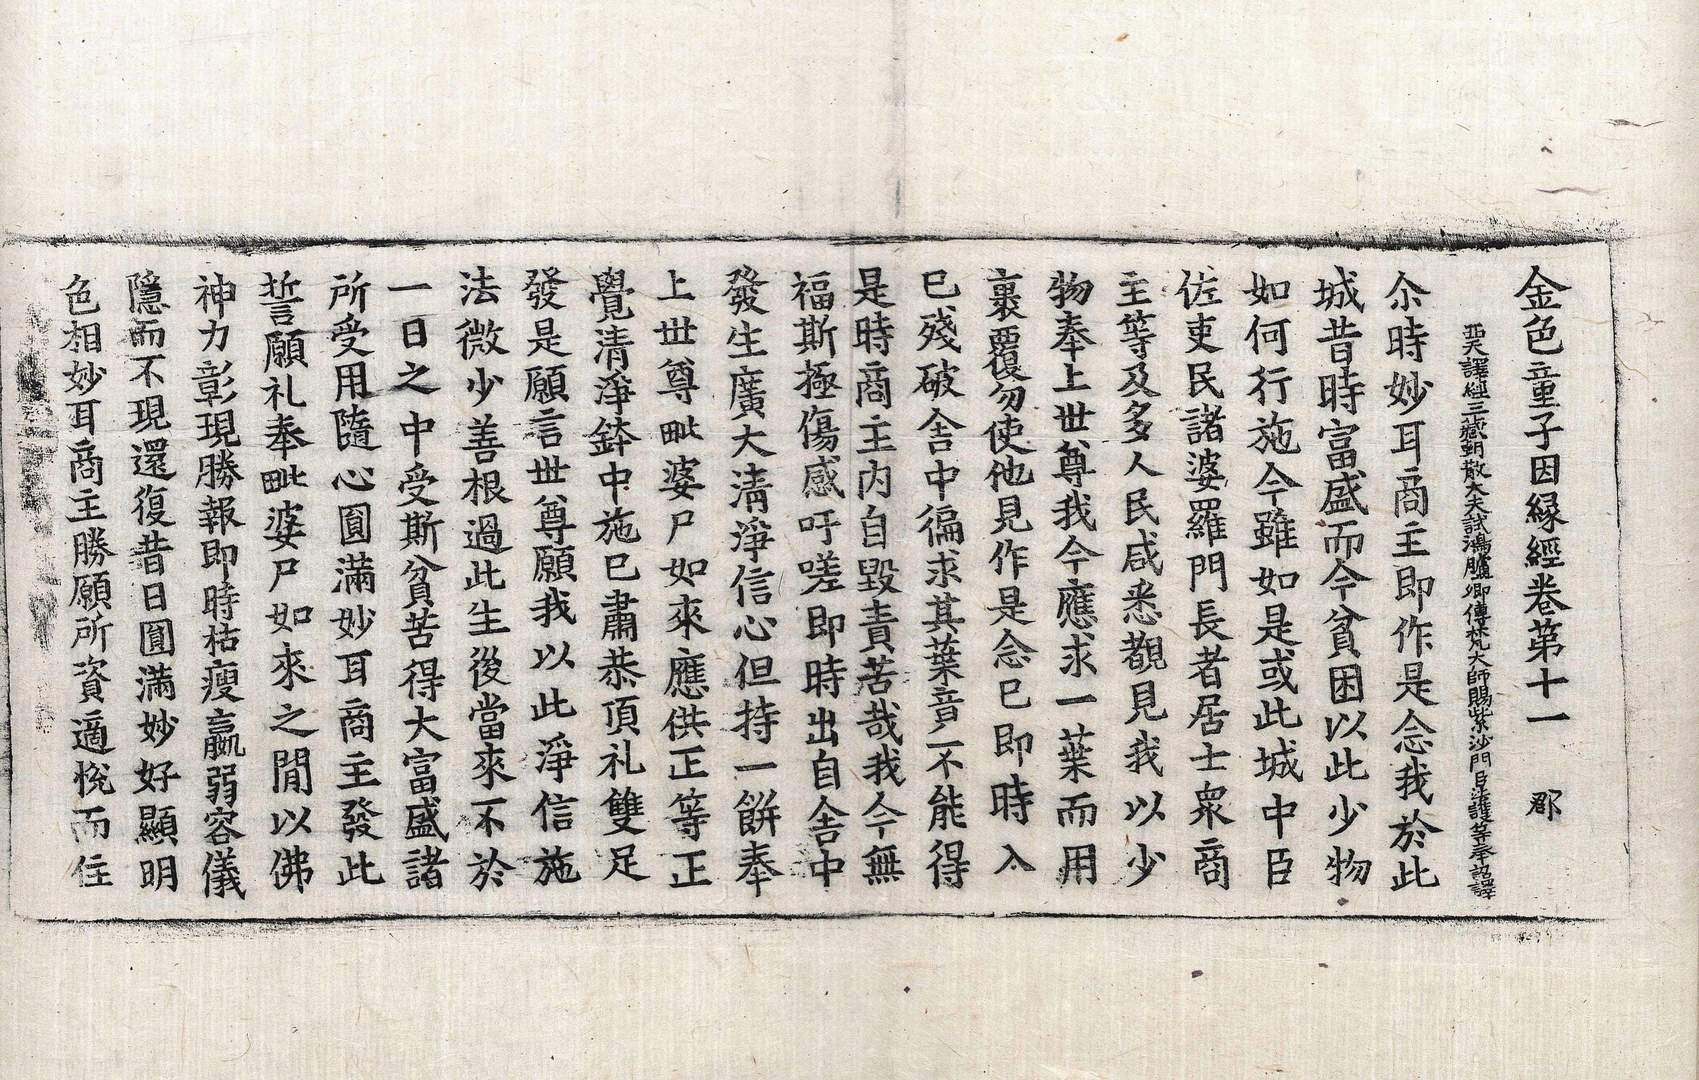 金色童子因縁經卷第十一 郡
西天譯經三藏朝散大夫試鴻臚卿傳梵大師賜紫沙門臣法護等奉詔譯
尒時妙耳商主即作是念我於此
城昔時富盛而今貧困以此少物
如何行施今雖如是或此城中臣
佐吏民諸婆羅門長者居士衆商
主等及多人民咸悉覩見我以少
物奉上世尊我今應求一葉而用
裹覆勿使他見作是念已即時入
已殘破舍中徧求其葉竟不能得
是時商主內自毀責苦哉我今無
福斯極傷感吁嗟即時出自舍中
發生廣大清淨信心但持一餠奉
上世尊毗婆尸如來應供正等正
覺清淨鉢中施已肅恭頂礼雙足
發是願言世尊願我以此淨信施
法微少善根過此生後當來不於
一日之中受斯貧苦得大富盛諸
所受用隨心圓滿妙耳商主發此
誓願礼奉毗婆尸如來之間以佛
神力彰現勝報即時枯瘦羸弱容儀
隱而不現還復昔日圓滿妙好顯明
色相妙耳商主勝願所資適悅而住